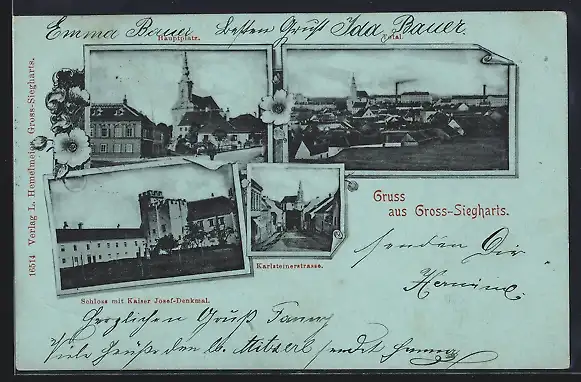 Emma Bauer besten Gruß Ida Bauer.
Hauptplatz.
Total.
Verlag L. Hemetmeier, Gross-Siegharts.
16514
Gruss
aus Gross-Siegharts.
Karlsteinerstrasse.
Schloss mit Kaiser Josef-Denkmal.
senden Dir
Hermine
Herzlichen Gruß Fanny
Viele Grüße der lb. Mitzerl sendet Emma